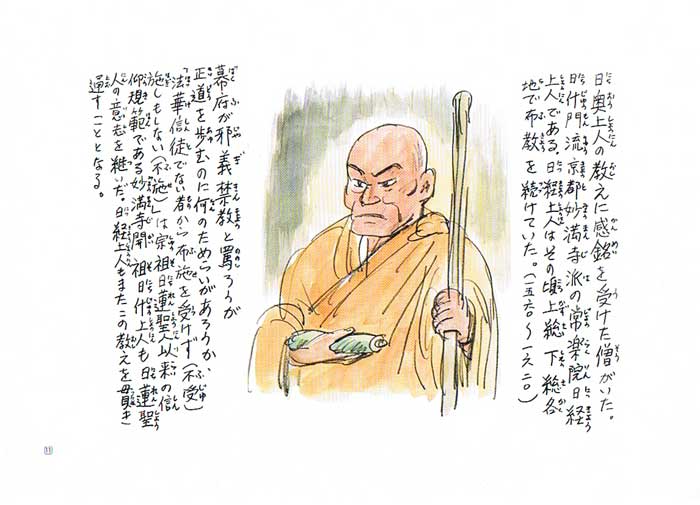 日奥上人の教えに感銘を受けた僧がいた。
日什門流京都妙満寺派の常楽院日経
上人である。日経上人はその頃上総、下総各
地で布教を続けていた。(一五六〇〜一六二〇)
幕府が邪義禁教と罵ろうが
正道を歩むのに何のためらいがあろうか、
「法華信徒でない者から布施を受けず(不受)
施しもしない(不施)」は宗祖日蓮聖人以来の信
仰規範である。妙満寺開祖日什上人も日蓮聖
人の意志を継いだ。日経上人もまたこの教えを貫き
通すこととなる。
11